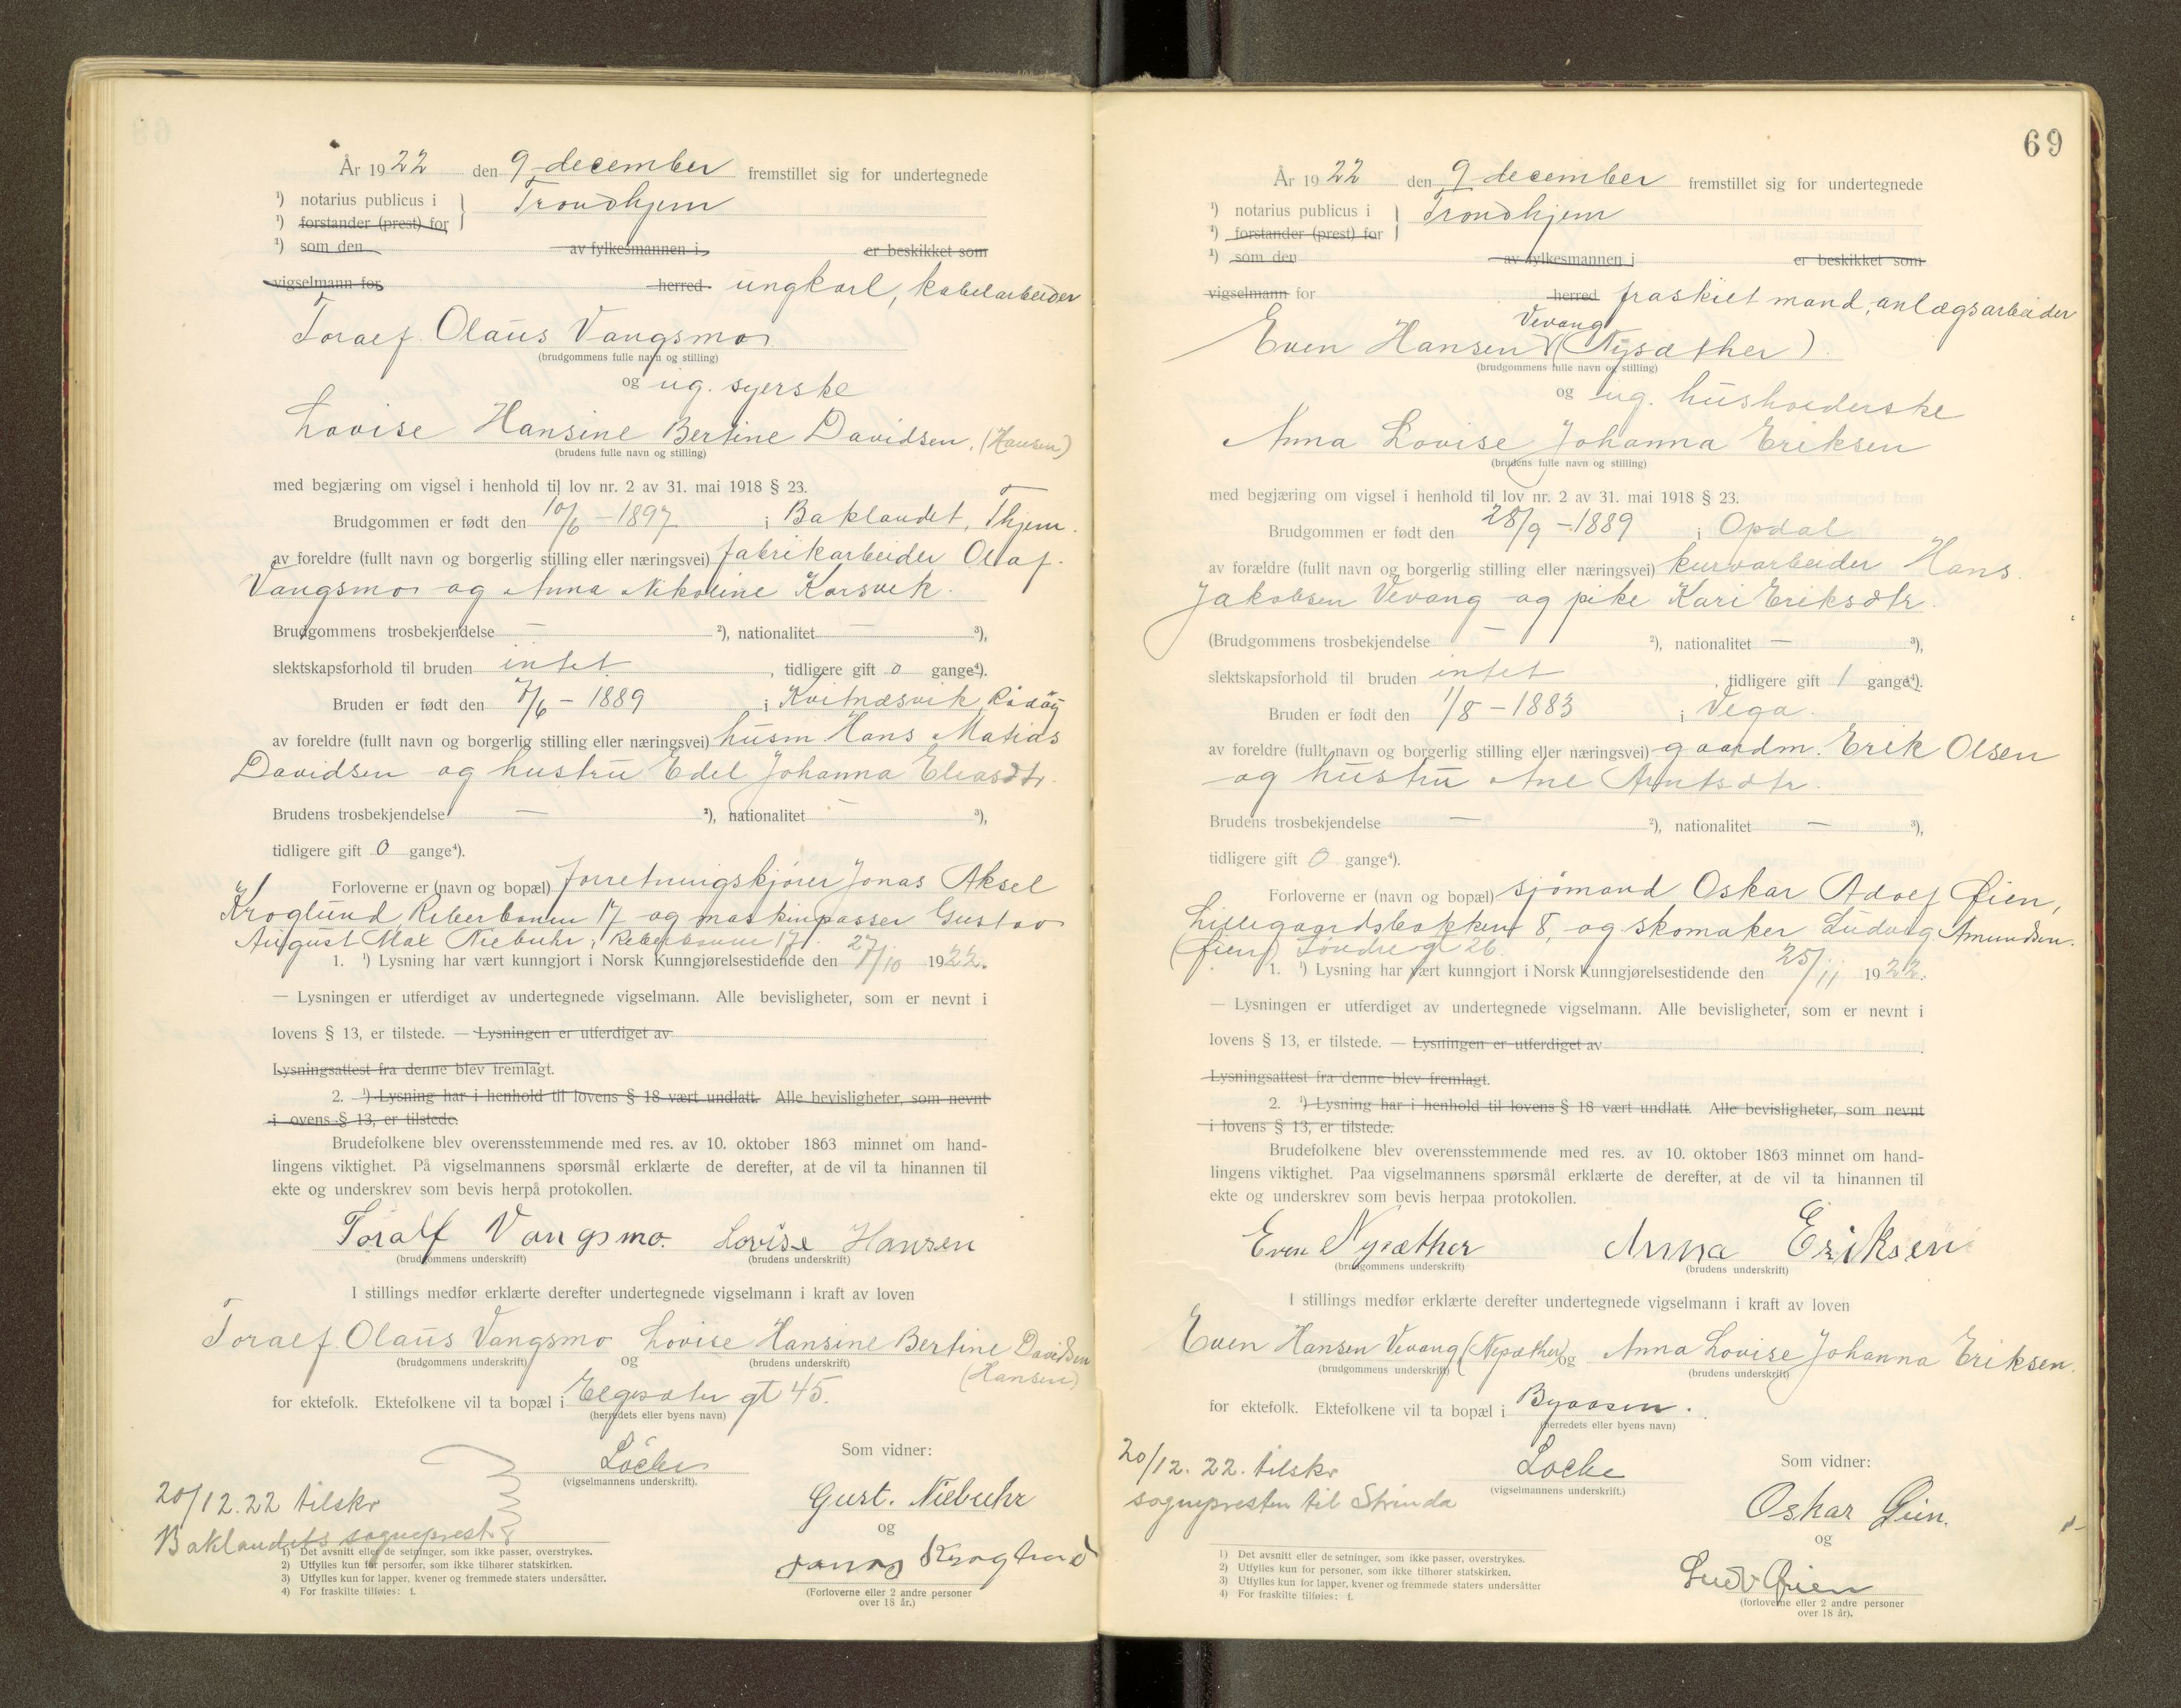 År 1922 den 9 december fremstillet sig for undertegnede
¹) notarius publicus i } Trondhjem
¹) forstander (prest) for
¹) som den av fylkesmannen i er beskikket som
vigselmann for herred ungkarl, kabelarbeider
Toralf Olaus Vangsmo
(brudgommens fulle navn og stilling)
og ug. syerske
Lovise Hansine Bertine Davidsen, (Hansen)
(brudens fulle navn og stilling)
med begjæring om vigsel i henhold til lov nr. 2 av 31. mai 1918 § 23.
Brudgommen er født den 10/6 - 1897 i Baklandet, Thjem.
av foreldre (fullt navn og borgerlig stilling eller næringsvei) fabrikarbeider Olaf
Vangsmo og Anna Nikoline Korsvik.
Brudgommens trosbekjendelse — ²), nationalitet — ³),
slektskapsforhold til bruden intet, tidligere gift 0 gange⁴).
Bruden er født den 7/6 - 1889 i Kvitnæsvik, Rödöy
av foreldre (fullt navn og borgerlig stilling eller næringsvei) husm Hans Matias
Davidsen og hustru Edel Johanna Eliasdtr.
Brudens trosbekjendelse — ²), nationalitet — ³),
tidligere gift 0 gange⁴).
Forloverne er (navn og bopæl) forretningskjører Jonas Aksel
Kroglund, Reberbanen 17 og maskinpasser Gustav
August Max Niebuhr, Reberbanen 17.
1. ¹) Lysning har vært kunngjort i Norsk Kunngjørelsestidende den 27/10 1922.
— Lysningen er utferdiget av undertegnede vigselmann. Alle bevisligheter, som er nevnt i
lovens § 13, er tilstede. — Lysningen er utferdiget av
Lysningsattest fra denne blev fremlagt.
2. ¹) Lysning har i henhold til lovens § 18 vært undlatt. Alle bevisligheter, som nevnt
i ovens § 13, er tilstede.
Brudefolkene blev overensstemmende med res. av 10. oktober 1863 minnet om hand-
lingens viktighet. På vigselmannens spørsmål erklærte de derefter, at de vil ta hinannen til
ekte og underskrev som bevis herpå protokollen.
Toralf Vangsmo. Lovise Hansen
(brudgommens underskrift) (brudens underskrift)
I stillings medfør erklærte derefter undertegnede vigselmann i kraft av loven
Toralf Olaus Vangsmo og Lovise Hansine Bertine Davidsen
(brudgommens underskrift) (brudens underskrift)
(Hansen)
for ektefolk. Ektefolkene vil ta bopæl i Elgesæter gt 45.
(herredets eller byens navn)
Löchen
(vigselmannens underskrift).
Som vidner:
20/12.22 tilskr
Baklandets sogneprest
Gust. Niebuhr
og
Jonas Kroglund
(Forloverne eller 2 andre personer
over 18 år.)
1) Det avsnitt eller de setninger, som ikke passer, overstrykes.
2) Utfylles kun for personer, som ikke tilhører statskirken.
3) Utfylles kun for lapper, kvener og fremmede staters undersåtter.
4) For fraskilte tilføies: f.
69
År 1922 den 9 december fremstillet sig for undertegnede
¹) notarius publicus i } Trondhjem
¹) forstander (prest) for
¹) som den av fylkesmannen i er beskikket som
vigselmann for herred fraskilt mand, anlægsarbeider
Vevang
Even Hansen (Nysæther)
(brudgommens fulle navn og stilling)
og ug. husholderske
Anna Lovise Johanna Eriksen
(brudens fulle navn og stilling)
med begjæring om vigsel i henhold til lov nr. 2 av 31. mai 1918 § 23.
Brudgommen er født den 28/9 - 1889 i Opdal
av forældre (fullt navn og borgerlig stilling eller næringsvei) kurvarbeider Hans
Jakobsen Vevang og pike Kari Eriksdtr.
(Brudgommens trosbekjendelse — ²), nationalitet — ³),
slektskapsforhold til bruden intet, tidligere gift 1 gange⁴).
Bruden er født den 1/8 - 1883 i Vega.
av foreldre (fullt navn og borgerlig stilling eller næringsvei) gaardm. Erik Olsen
og hustru Ane Arntsdtr.
Brudens trosbekjendelse — ²), nationalitet — ³),
tidligere gift 0 gange⁴).
Forloverne er (navn og bopæl) sjömand Oskar Adolf Øien,
Lillegaardsbakken 8, og skomaker Ludvig Amundsen
(Øien) Söndregt 26.
1. ¹) Lysning har vært kunngjort i Norsk Kunngjørelsestidende den 25/11 1922.
— Lysningen er utferdiget av undertegnede vigselmann. Alle bevisligheter, som er nevnt i
lovens § 13, er tilstede. — Lysningen er utferdiget av
Lysningsattest fra denne blev fremlagt.
2. ¹) Lysning har i henhold til lovens § 18 vært undlatt. Alle bevisligheter, som nevnt
i lovens § 13, er tilstede.
Brudefolkene blev overensstemmende med res. av 10. oktober 1863 minnet om hand-
lingens viktighet. Paa vigselmannens spørsmål erklærte de derefter, at de vil ta hinannen til
ekte og underskrev som bevis herpaa protokollen.
Even Nysæther Anna Eriksen
(brudgommens underskrift) (brudens underskrift)
I stillings medfør erklærte derefter undertegnede vigselmann i kraft av loven
Even Hansen Vevang (Nysæther) og Anna Lovise Johanna Eriksen.
(brudgommens underskrift) (brudens underskrift)
for ektefolk. Ektefolkene vil ta bopæl i Byaasen.
(herredets eller byens navn)
20/12. 22. tilskr
sognepresten til Strinda
Löchen
(vigselmannens underskrift.)
Som vidner:
Oskar Øien.
og
Ludv Øien
(forloverne eller 2 andre personer
over 18 år).
1) Det avsnitt eller de setninger, som ikke passer, overstrykes.
2) Utfylles kun for personer, som ikke tilhører statskirken.
3) Utfylles kun for lapper, kvener og fremmede staters undersåtter
4) For fraskilte tilføies: f.